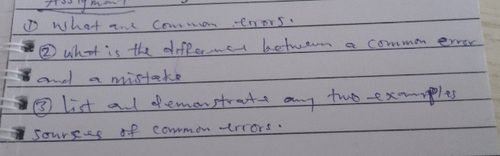 Assignment
① What are common errors.
② What is the difference between a common error
and a mistake
③ list and demonstrate any two examples
sources of common errors.